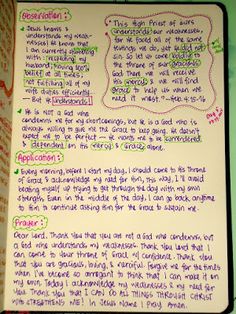 Observation:
• Jesus knows &
understands my weak-
nesses! He knows that
I am currently struggling
with: respecting my
husband, having self
belief at all times,
not fulfilling all of
my wife duties efficiently.
But He understands!
"This High Priest of ours
understands our weaknesses,
for he faced all of the same
testings we do, yet he did not
sin. So let us come boldly to
the throne of our gracious
God. There we will receive
his mercy, & we will find
grace to help us when we
need it most." -Heb. 4:15-16
• He is not a God who
condemns me for my shortcomings, but He is a God who is
always willing to give me the grace to keep going. He doesn't
expect me to be perfect – He wants me to be surrendered
& dependent on his mercy & Grace alone.
Application:
• Every morning, before I start my day, I should come to His throne
of Grace & acknowledge my need for him, this way, I'll avoid
beating myself up trying to get through the day with my own
strength. Even in the middle of the day, I can go back anytime
to Him to continue asking him for the Grace to sustain me.
Prayer:
Dear Lord, Thank You that you are not a God who condemns, but
a God who understands my weaknesses. Thank You Lord that I
can come to your throne of Grace, w/ confidence. Thank You
that You are gracious, loving, & merciful. Forgive me for the times
when I've become so arrogant to think that I can make it on
my own. Today I acknowledge my weaknesses & my need for
You. Thank You that I CAN DO ALL THINGS THROUGH CHRIST
WHO STRENGTHENS ME! In Jesus Name I Pray, Amen.